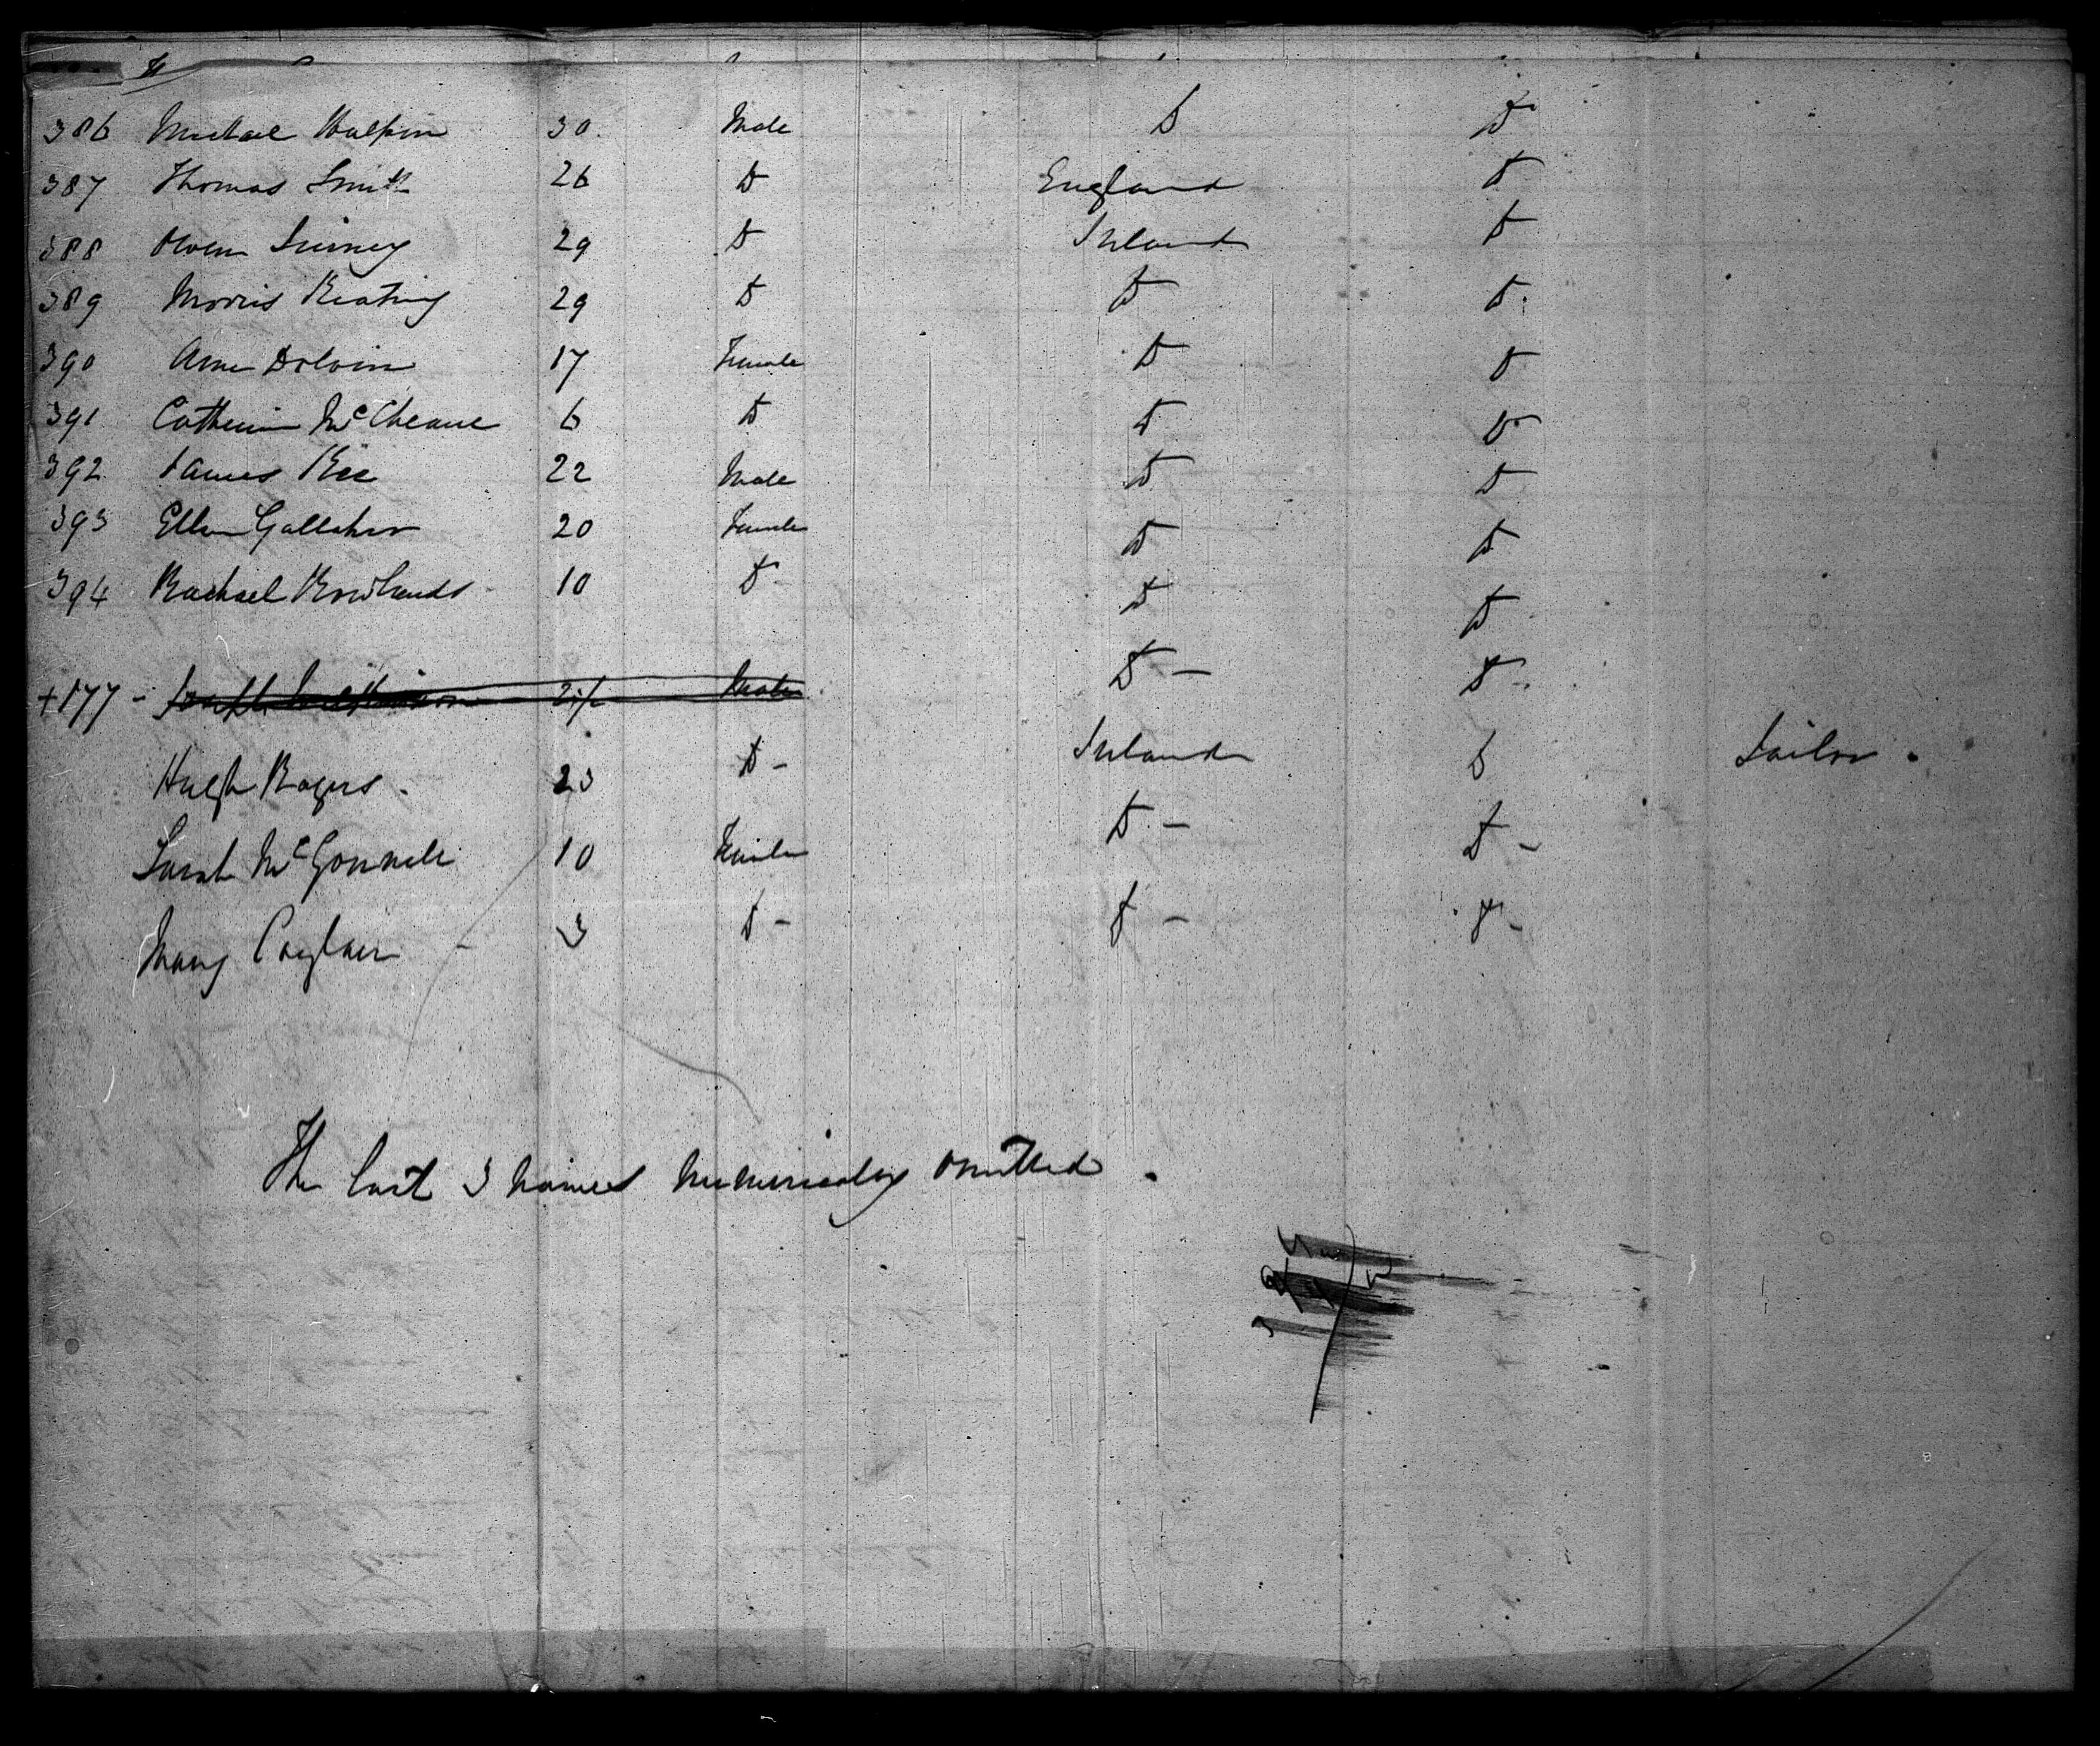 386 Michael Halpin 30 Male Do Do
387 Thomas Smith 26 Do England Do
388 Owen Do Ireland Do
389 Morris Keating 29 Do Do Do
390 Ann Dolvin 17 Female Do Do
391 Catherine McCheane 6 Do Do Do
392 James Kee 22 Male Do Do
393 Ellen Gallaher 20 Female Do Do
394 Rachael Rowlands 10 Do Do Do
+177 - Joseph Male Do - Do -
Hugh Rogers. 23 Do - Ireland Do Tailor.
Sarah McGonnell 10 Female Do - Do -
Mary 3 Do - Do - Do -
The last 3 names numericaly omitted.